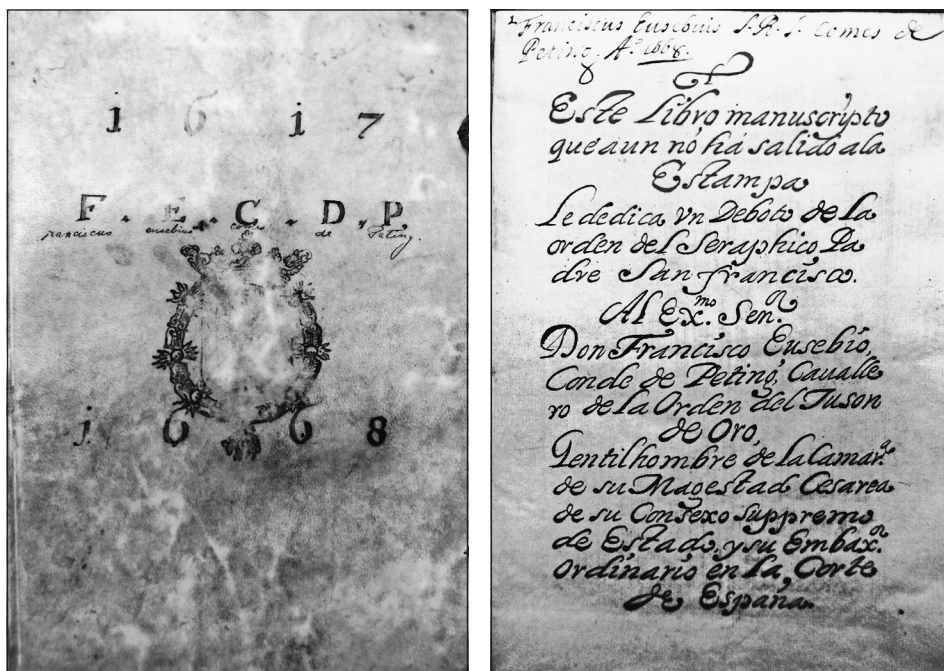 1 6 1 7
F. E. C. D. P.
franciscus eusebius comes de Peting.
1 6 6 8
Franciscus Eusebius S. R. I. Comes de
Peting. A.º 1668.
Este Libro manuscripto
que aun nó há salido ala
Estampa
Le dedica vn Deboto de La
orden del Seraphico, Pa
dre San francisco.
Al Ex.mo Sen.or
Don Francisco Eusebio,
Conde de Peting, Cavalle
ro de la Orden del Tuson
de Oro,
Gentilhombre de la Camar.a
de su Magestad Cesarea
de su Consexo suppremo
de Estado, y su Embax.or
Ordinario en La Corte
de España.